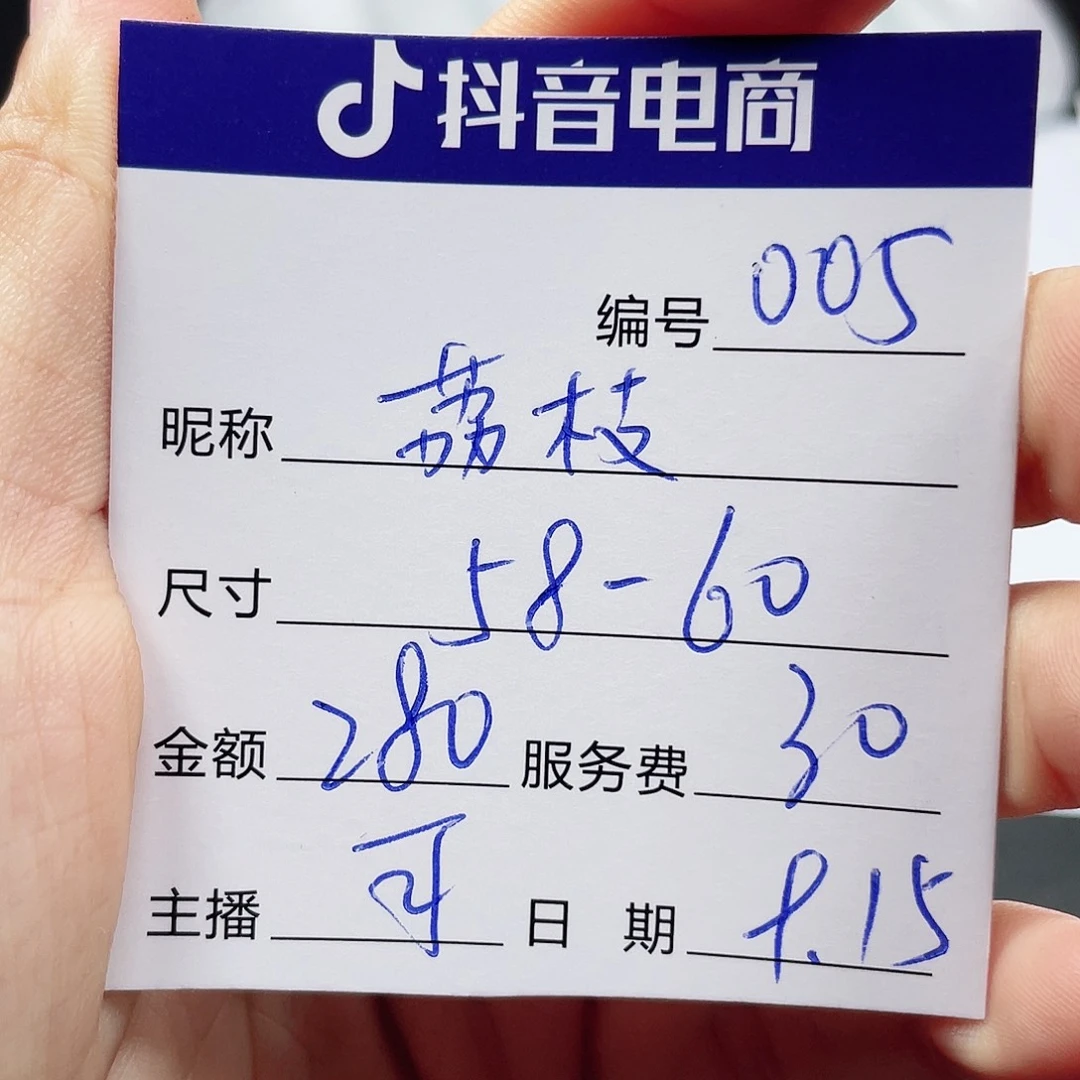 抖音电商
编号 005
昵称 荔枝
尺寸 58-60
金额 280 服务费 30
主播 可 日期 9.15